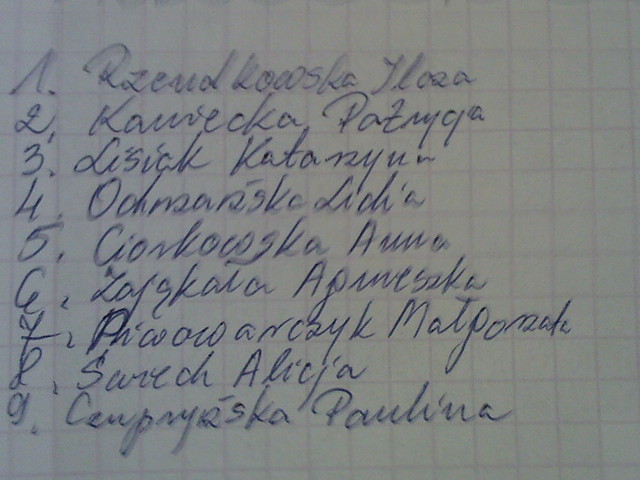 1. Rzendkowska Iloza
2. Kawiecka Patrycja
3. Lisiak Katarzyna
4. Lidia
5. Ciorkowska Anna
6. Zająkała Agnieszka
7. Piwowarczyk Małgorzata
8. Świech Alicja
9. Paulina